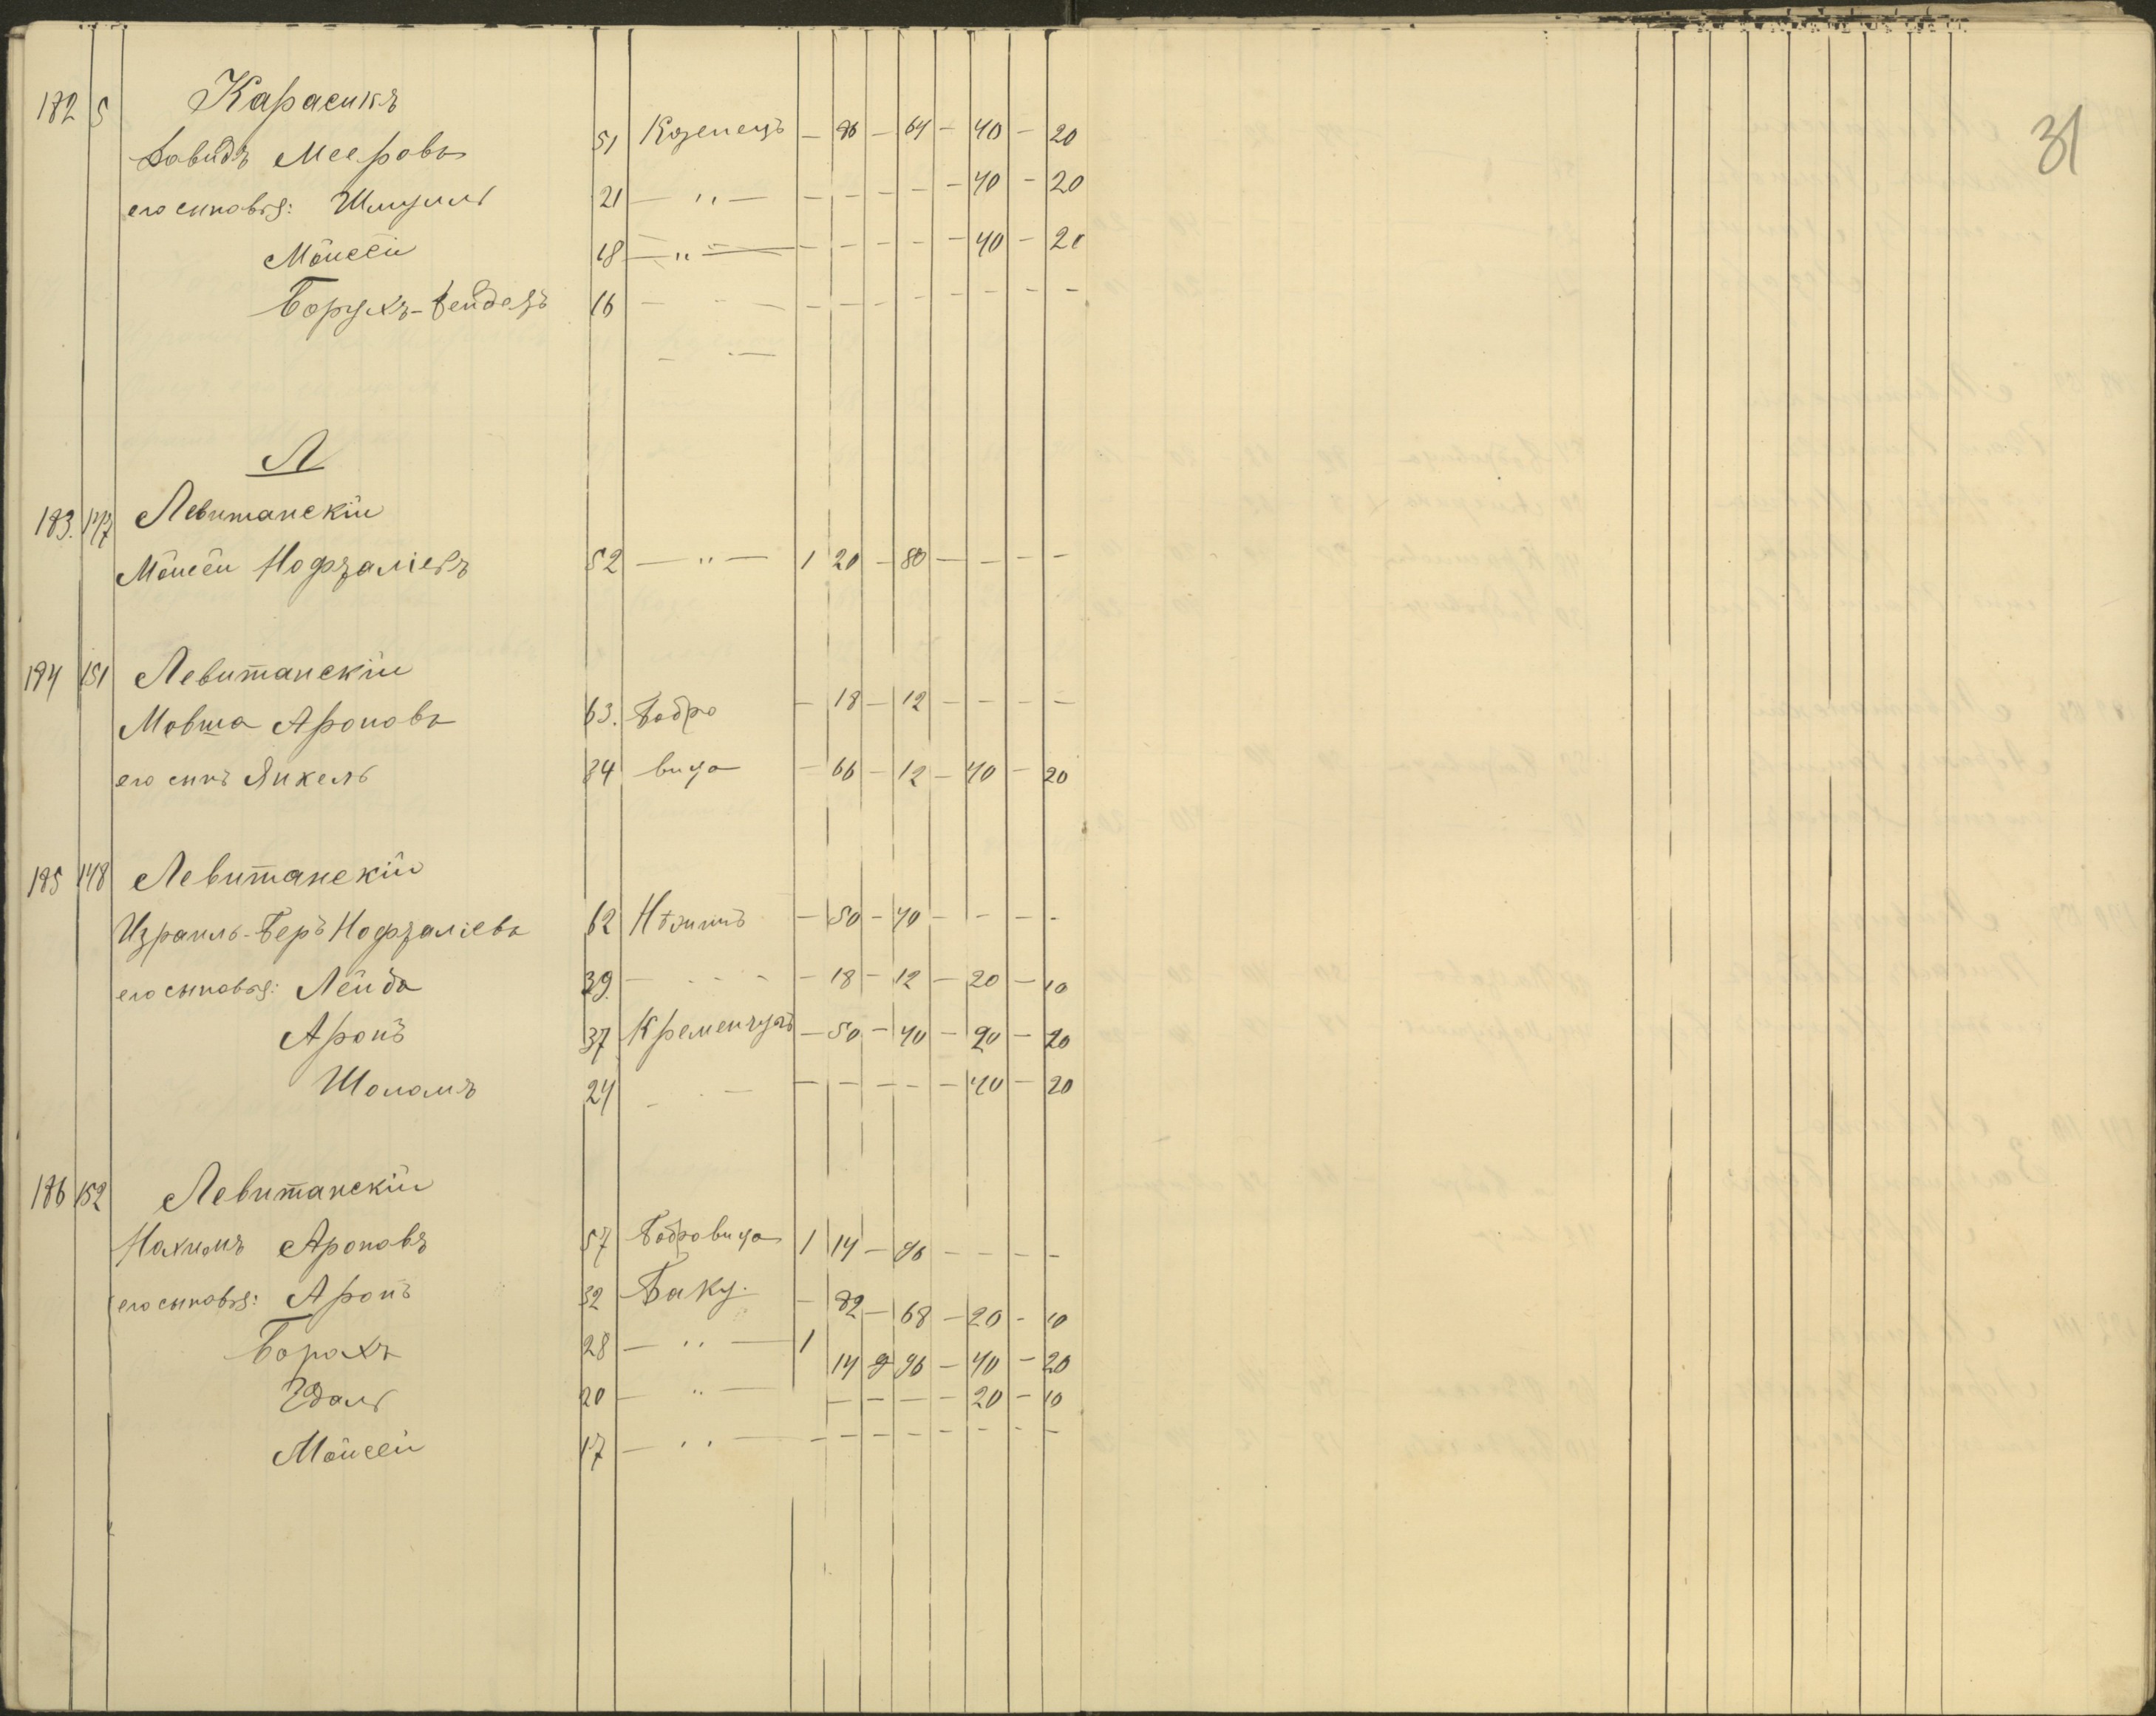 31
182 5 Карасикъ
Давидъ Мееровъ 51 Козелецъ — 96 — 64 — 40 — 20
его сыновья: Шмуиль 21 — " — — — — — — 40 — 20
Мойсей 18 — " — — — — — — 40 — 20
Борухъ-Зейдель 16 — — — — — — — — — —
Л
183. 147 Левитанскій
Мойсей Нофталіевъ 52 — " — 1 20 — 80 — — — —
184 151 Левитанскій
Мовша Ароновъ 63. Бобро — 18 — 12 — — — —
его сынъ Янкель 34 вица — 66 — 12 — 40 — 20
185 148 Левитанскій
Израиль-Беръ Нофталіевъ 62 Нѣжинъ — 50 — 40 — — — —
его сыновья: Лейба 39. — — 18 — 12 — 20 — 10
Аронъ 37 Кременчугъ — 50 — 40 — 20 — 20
Шоломъ 24 — — — — — — — 40 — 20
186 152 Левитанскій
Нахимъ Ароновъ 57 Бобровица 1 14 — 96 — — — —
его сыновья: Аронъ 32 Баку. — 82 — 68 — 20 — 10
Борохъ 28 — " — 1 14 96 — 40 — 20
Удаль 20 — " — — — — — 20 — 10
Мойсей 17 — " — — — — — — — — —